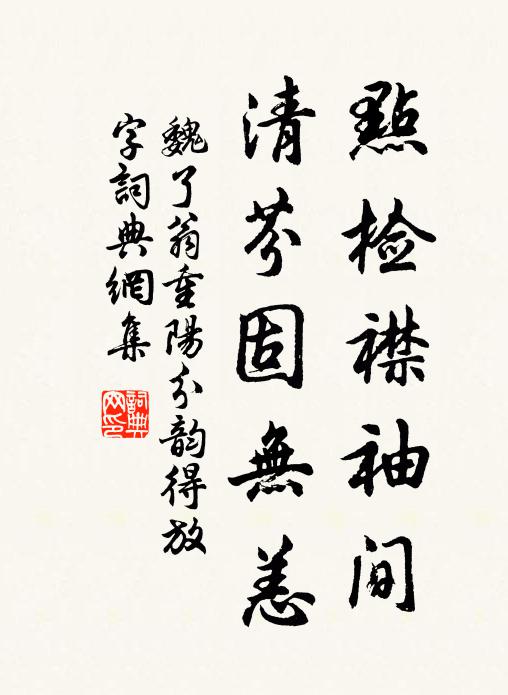 點檢襟袖間
清芬固無恙
魏了翁重陽分韵得放
字詞典網集
詞典網印